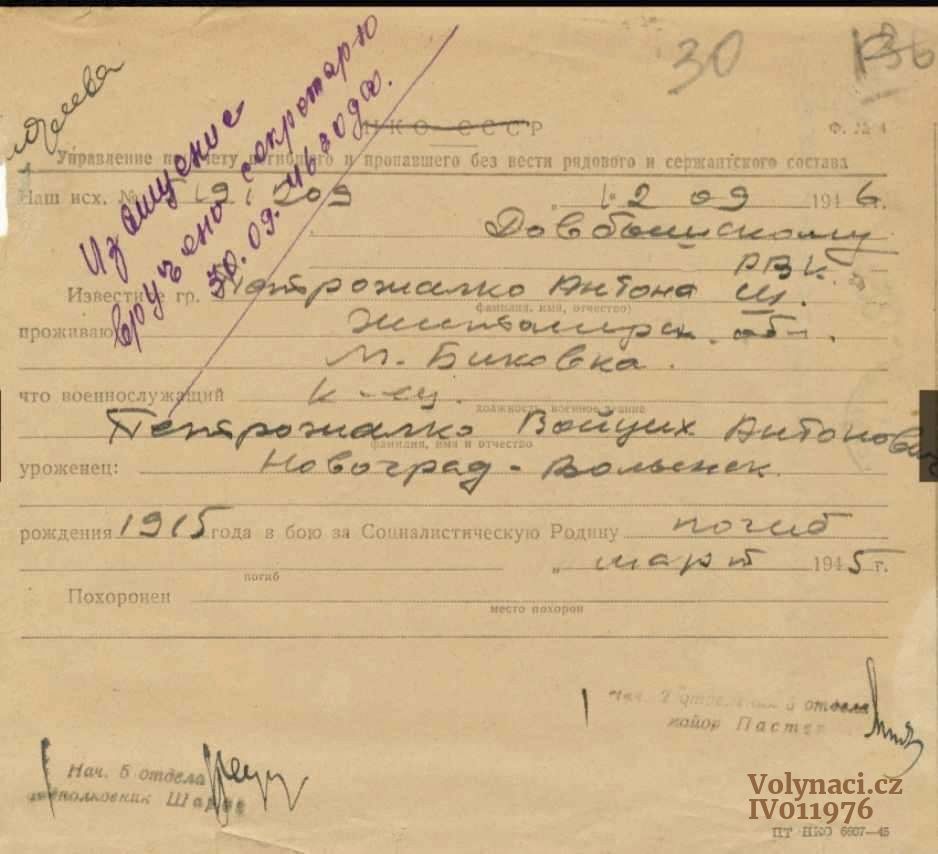 30
136
Извещение
вручено секретарю
30.09.46 года.
НКО СССР
Ф. № 4
Управление по учету погибшего и пропавшего без вести рядового и сержантского состава
Наш исх. № 191209 „12 09 1946 г.
Довбышскому
РВК.
Известите гр. Петрожалко Антона Ш.
фамилия, имя, отчество)
проживаю Житомирск. обл.
м. Биковка.
что военнослужащий к-ец.
должность, военное звание
Петрожалко Войцих Антонович
фамилия, имя и отчество
уроженец: Новоград-Волынск.
рождения 1915 года в бою за Социалистическую Родину погиб
„ март 1945 г.
погиб
Похоронен
место похорон
Нач. 2 отделения 5 отдела
майор
Нач. 5 отдела
подполковник
Volynaci.cz
IV011976
ПТ НКО 6607—45